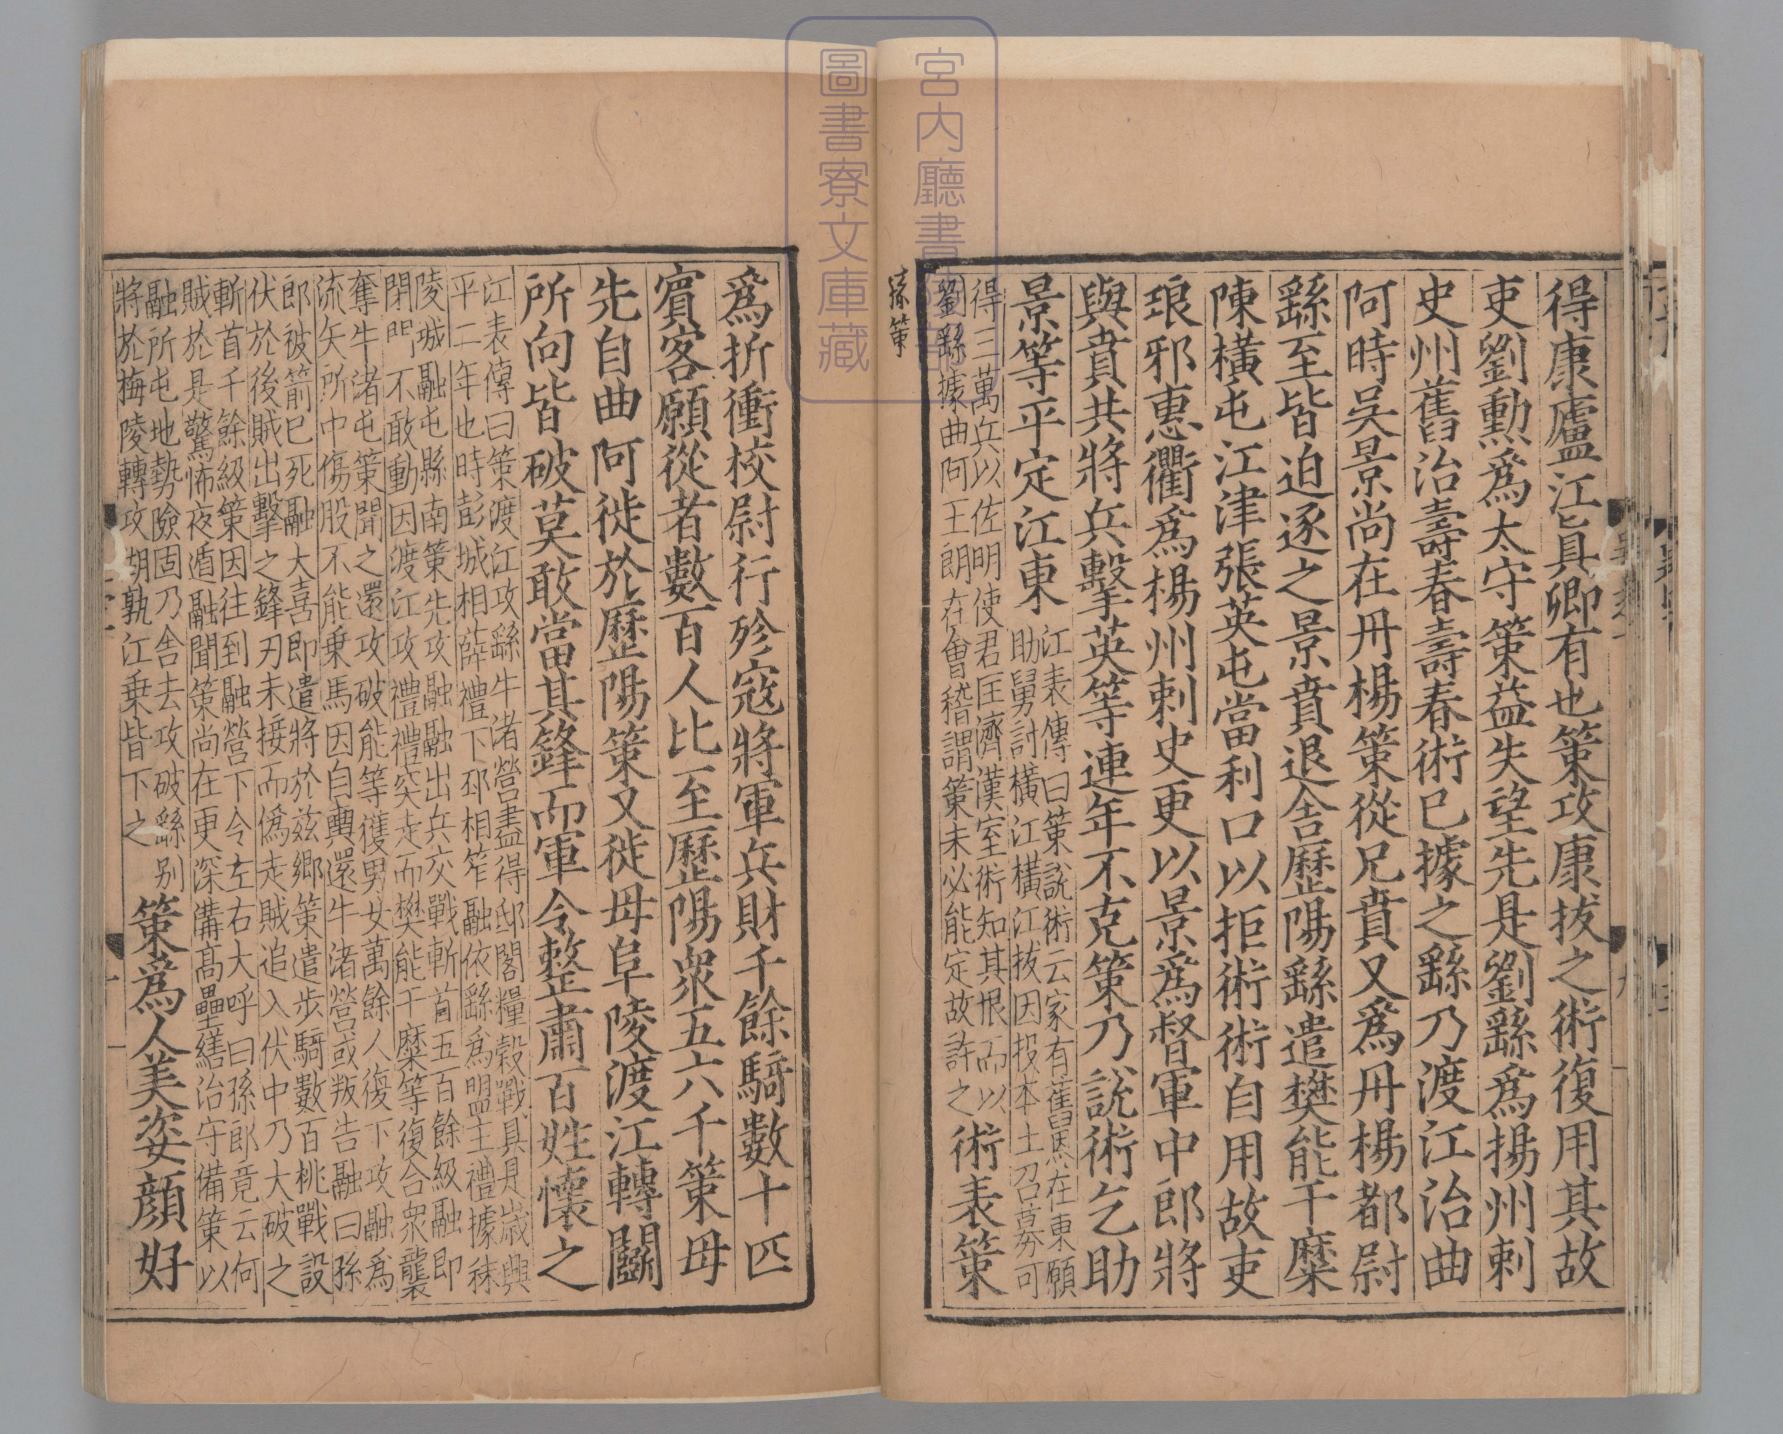 得康廬江眞卿有也策攻康拔之術復用其故
吏劉勳爲太守策益失望先是劉繇爲揚州刺
史州舊治壽春壽春術已據之繇乃渡江治曲
阿時吳景尚在丹楊策從兄賁又爲丹楊都尉
繇至皆迫逐之景賁退舍歷陽繇遣樊能于糜
陳橫屯江津張英屯當利口以拒術術自用故吏
琅邪惠衢爲楊州刺史更以景爲督軍中郎將
與賁共將兵擊英等連年不克策乃說術乞助
景等平定江東
江表傳曰策說術云家有舊恩在東願
助舅討橫江橫江拔因投本土召募可
得三萬兵以佐明使君匡濟漢室術知其恨而以
劉繇據曲阿王朗在會稽謂策未必能定故許之
術表策
孫策
爲折衝校尉行殄寇將軍兵財千餘騎數十匹
賓客願從者數百人比至歷陽衆五六千策母
先自曲阿徙於歷陽策又徙母阜陵渡江轉鬭
所向皆破莫敢當其鋒而軍令整肅百姓懷之
江表傳曰策渡江攻繇牛渚營盡得邸閣糧穀戰具是歲興
平二年也時彭城相薛禮下邳相笮融依繇爲盟主禮據秣
陵城融屯縣南策先攻融融出兵交戰斬首五百餘級融即
閉門不敢動因渡江攻禮禮突走而樊能于糜等復合衆襲
奪牛渚屯策聞之還攻破能等獲男女萬餘人復下攻融爲
流矢所中傷股不能乗馬因自輿還牛渚營或叛告融曰孫
郎被箭已死融大喜即遣將於兹鄉策遣步騎數百挑戰設
伏於後賊出擊之鋒刃未接而僞走賊追入伏中乃大破之
斬首千餘級策因往到融營下令左右大呼曰孫郎竟云何
賊於是驚怖夜遁融聞策尚在更深溝高壘繕治守備策以
融所屯地勢險固乃舍去攻破繇别
將於梅陵轉攻湖孰江乗皆下之
策爲人美姿顔好
宮內廳書陵部
圖書寮文庫藏